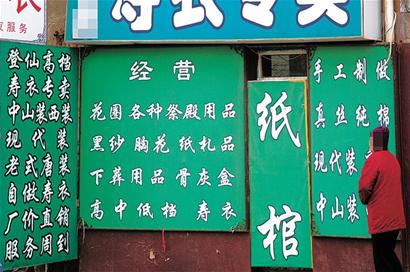 衣
友服务
寿衣专卖
登仙高档
寿衣号卖
中山装西装
现代装
老式唐装
自做寿衣
厂价直销
服务周到
经营
花圈各种祭殿用品
黑纱胸花纸札品
下葬用品骨灰盒
高中低档寿衣
纸棺
手工制做
真丝纯棉
现代装
中山装